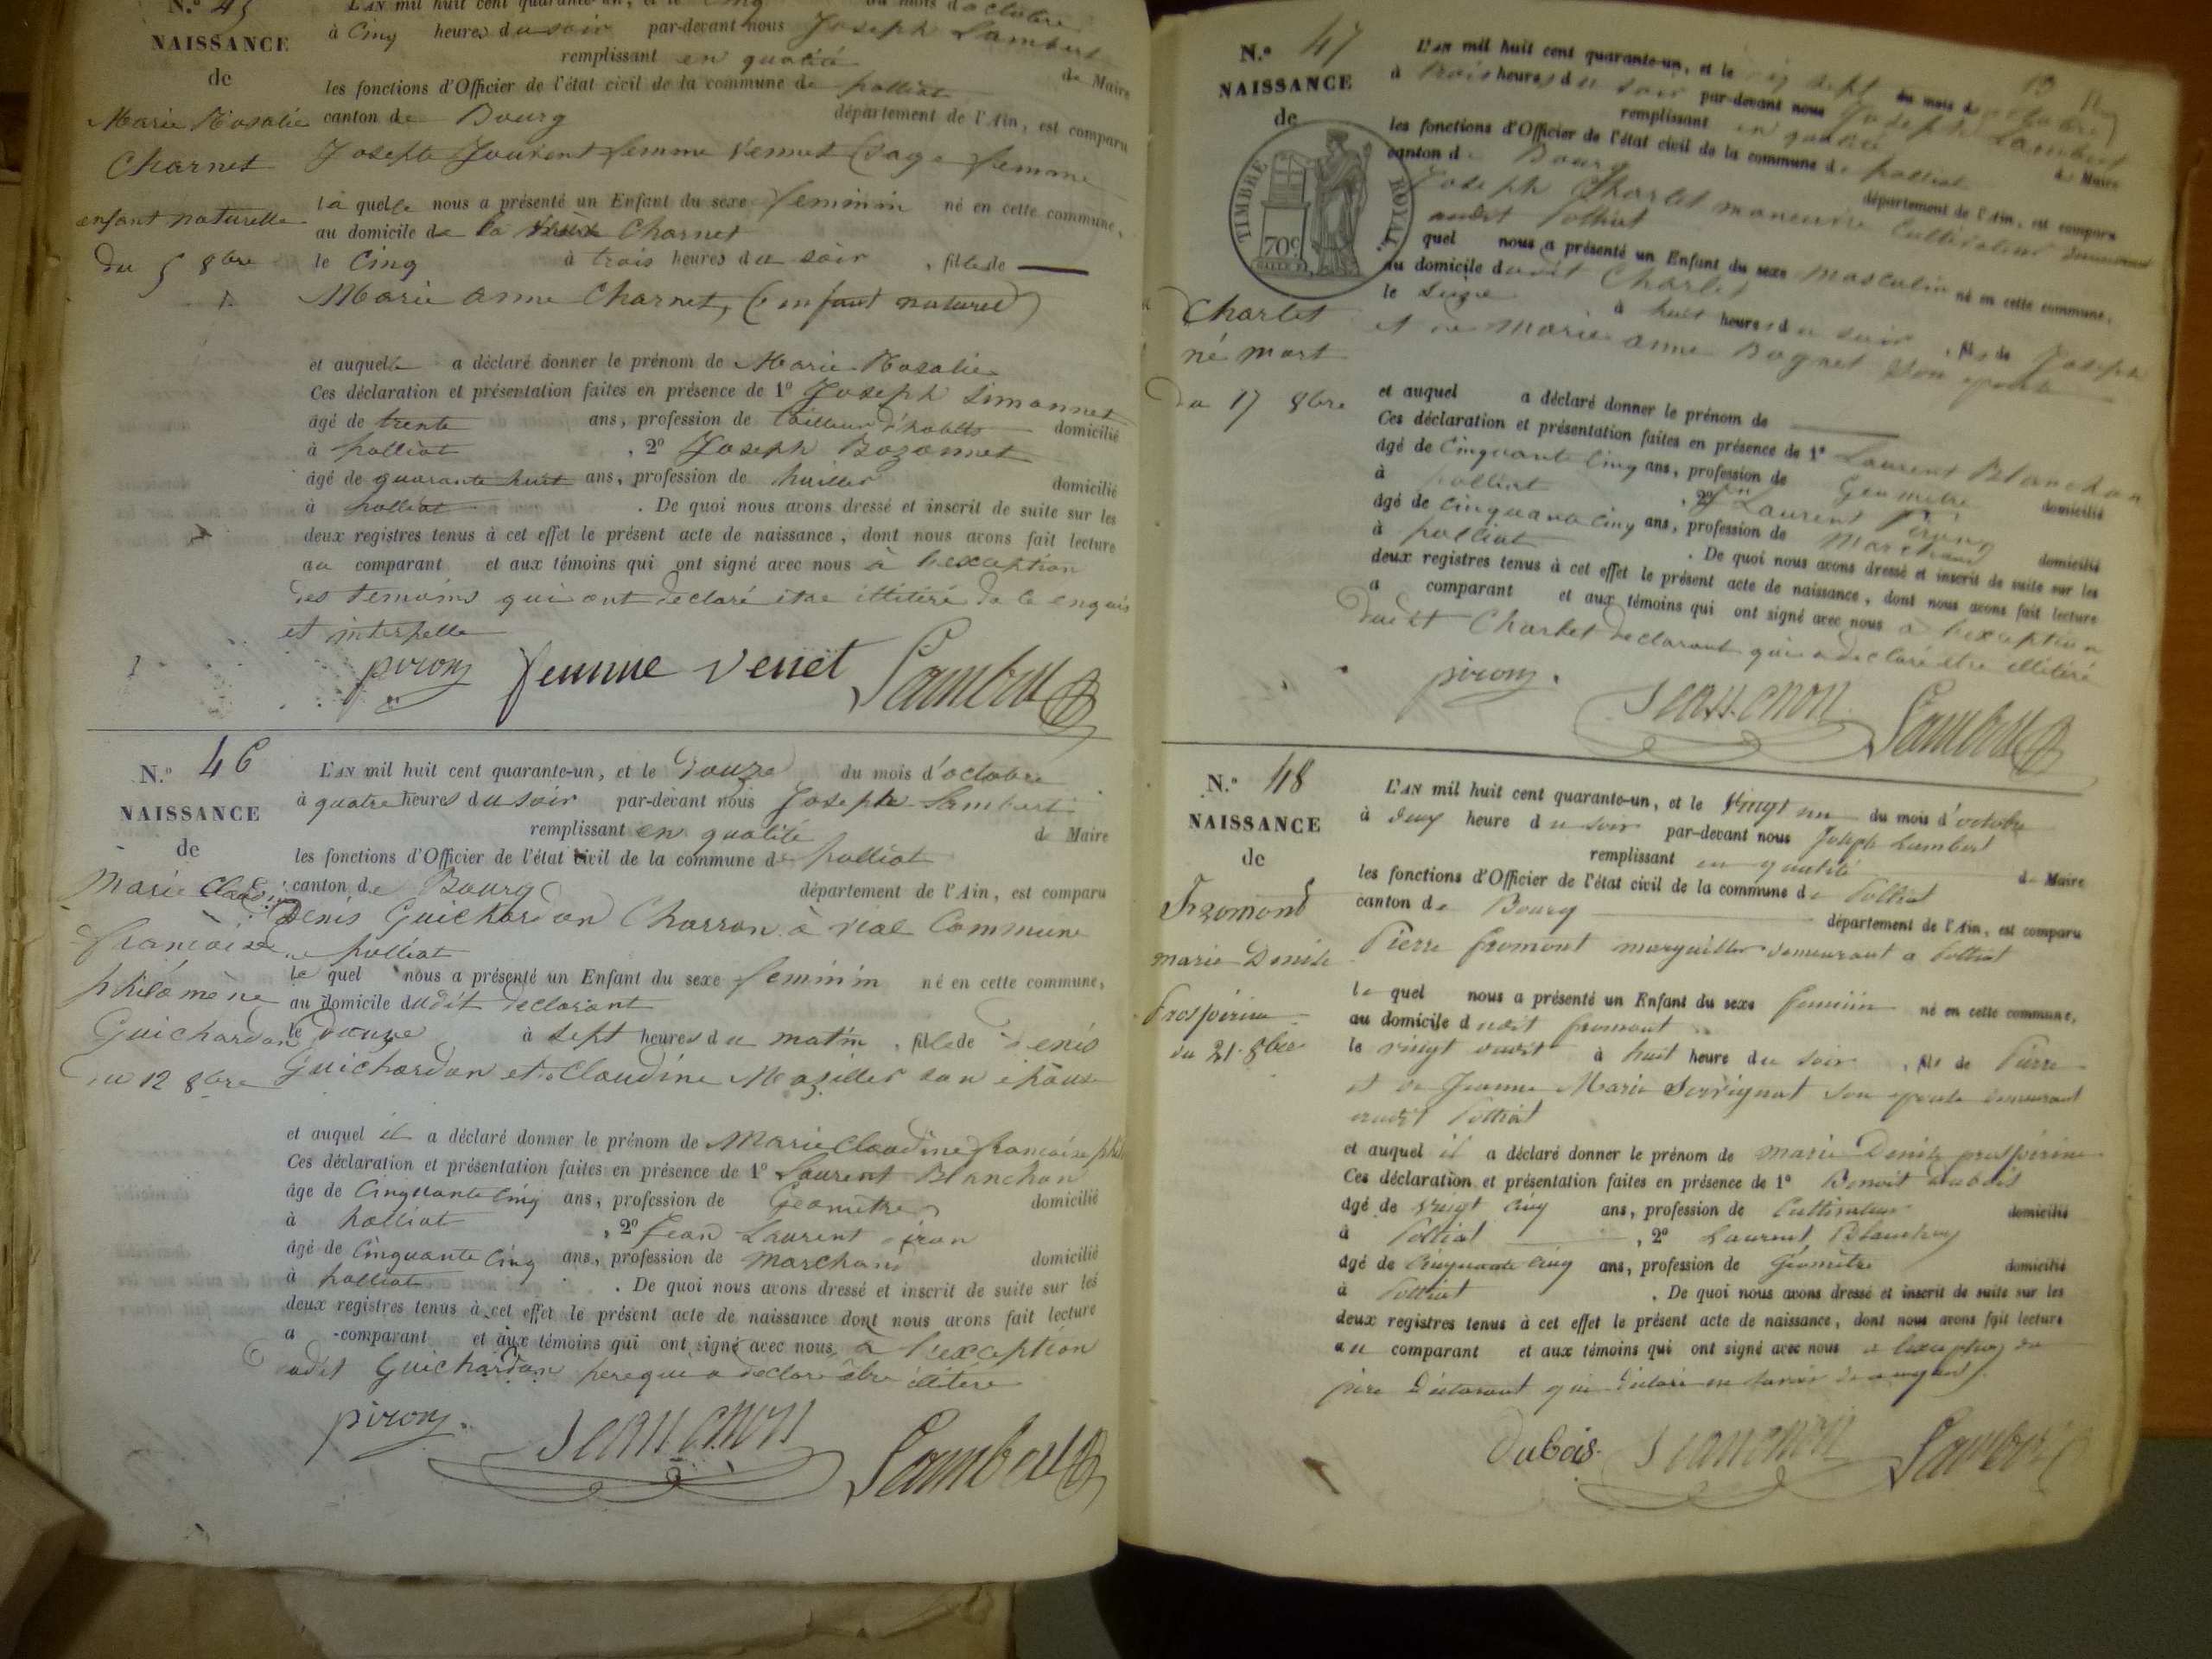 N.° 45
L'AN mil huit cent quarante-un, et le cinq du mois d'octobre
NAISSANCE
de
Marie Rosalie
Charnet
enfant naturelle
du 5 8bre
à Cinq heures du soir par-devant nous Joseph Lambert
remplissant en qualité de Maire
les fonctions d'Officier de l'état civil de la commune de polliat
canton de Bourg département de l'Ain, est comparu
Josepte femme Vennet (sage femme
la quelle nous a présenté un Enfant du sexe feminin né en cette commune,
au domicile de la Charnet
le Cinq à trois heures du soir , fille de
Marie anne Charnet, (enfant naturel)
et auquelle a déclaré donner le prénom de Marie Rosalie
Ces déclaration et présentation faites en présence de 1° Joseph Simonnet
âgé de trente ans, profession de tailleur d'habits domicilié
à polliat , 2° Joseph Bozonnet
âgé de quarante huit ans, profession de huillier domicilié
à polliat . De quoi nous avons dressé et inscrit de suite sur les
deux registres tenus à cet effet le présent acte de naissance, dont nous avons fait lecture
au comparant et aux témoins qui ont signé avec nous à l'exception
des temoins qui ont declaré être illitéré de ce enquis
et interpellé
pirong femme venet Lambert
N.° 46
NAISSANCE
de
Marie Claudine
françoise
philomène
Guichardan
du 12 8bre
L'AN mil huit cent quarante-un, et le Douze du mois d'octobre
à quatre heures du soir par-devant nous Joseph Lambert
remplissant en qualité de Maire
les fonctions d'Officier de l'état civil de la commune de polliat
canton de Bourg département de l'Ain, est comparu
Denis Guichardan Charron à vial Commune
de polliat
le quel nous a présenté un Enfant du sexe feminin né en cette commune,
au domicile dudit declarant
le douze à sept heures du matin , fille de Denis
Guichardan et Claudine Mazillier son épouse
et auquel il a déclaré donner le prénom de Marie Claudine françoise phil
Ces déclaration et présentation faites en présence de 1° Laurent Blanchon
âgé de Cinquante Cinq ans, profession de Géometre domicilié
à polliat , 2° Jean Laurent piron
âgé de Cinquante Cinq ans, profession de marchand domicilié
à polliat . De quoi nous avons dressé et inscrit de suite sur les
deux registres tenus à cet effet le présent acte de naissance dont nous avons fait lecture
a comparant et aux témoins qui ont signé avec nous, a l'exception
dudit Guichardan pere qui a declaré être illitéré
pirong. Lambert
N.° 47
NAISSANCE
de
TIMBRE ROYAL
70c
Charlet
né mort
du 17 8bre
L'AN mil huit cent quarante-un, et le dix sept du mois d'octobre
à trois heures du soir par-devant nous Joseph Lambert
remplissant en qualité de Maire
les fonctions d'Officier de l'état civil de la commune de polliat
canton de Bourg département de l'Ain, est comparu
Joseph Charlet manœuvre Cultivateur demeurant
audit Polliat
quel nous a présenté un Enfant du sexe masculin né en cette commune,
au domicile dudit Charlet
le Seize à huit heures du soir , fils de Joseph
et de Marie anne Bagnet son epouse
et auquel a déclaré donner le prénom de
Ces déclaration et présentation faites en présence de 1° Laurent Blanchon
âgé de Cinquante Cinq ans, profession de Géometre domicilié
à polliat , 2° Jn Laurent Pirong
âgé de Cinquante Cinq ans, profession de Marchand domicilié
à polliat . De quoi nous avons dressé et inscrit de suite sur les
deux registres tenus à cet effet le présent acte de naissance, dont nous avons fait lecture
a comparant et aux témoins qui ont signé avec nous à l'exception
dudit Charlet declarant qui a declaré être illitéré
pirong. Lambert
N.° 48
NAISSANCE
de
Fromont
marie Denise
Prosperine
du 21 8bre
L'AN mil huit cent quarante-un, et le Vingt un du mois d'octobre
à deux heure du soir par-devant nous Joseph Lambert
remplissant en qualité de Maire
les fonctions d'Officier de l'état civil de la commune de Polliat
canton de Bourg département de l'Ain, est comparu
Pierre fromont marguiller demeurant a Polliat
le quel nous a présenté un Enfant du sexe feminin né en cette commune,
au domicile dudit fromont
le vingt dudit à huit heure du soir , fils de Pierre
et de Jeanne Marie Servignat son epouse demeurant
audit Polliat
et auquel il a déclaré donner le prénom de marie Denise prosperine
Ces déclaration et présentation faites en présence de 1° Benoit dubois
âgé de vingt cinq ans, profession de Cultivateur domicilié
à Polliat , 2° Laurent Blanchon
âgé de Cinquante Cinq ans, profession de Géomètre domicilié
à Polliat . De quoi nous avons dressé et inscrit de suite sur les
deux registres tenus à cet effet le présent acte de naissance, dont nous avons fait lecture
au comparant et aux témoins qui ont signé avec nous a l'exception du
père déclarant qui déclaré ne savoir de ce enquis
Dubois. Lambert